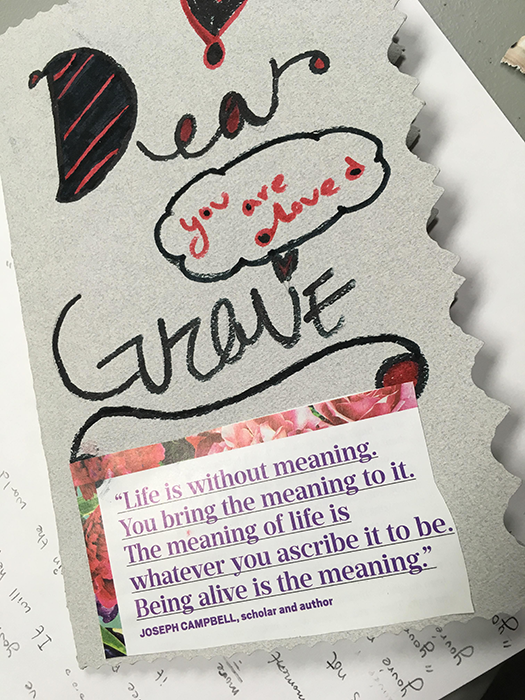 Dear
you are
loved
GraVE
“Life is without meaning.
You bring the meaning to it.
The meaning of life is
whatever you ascribe it to be.
Being alive is the meaning.”
JOSEPH CAMPBELL, scholar and author
in the world
It will
not
more
you're